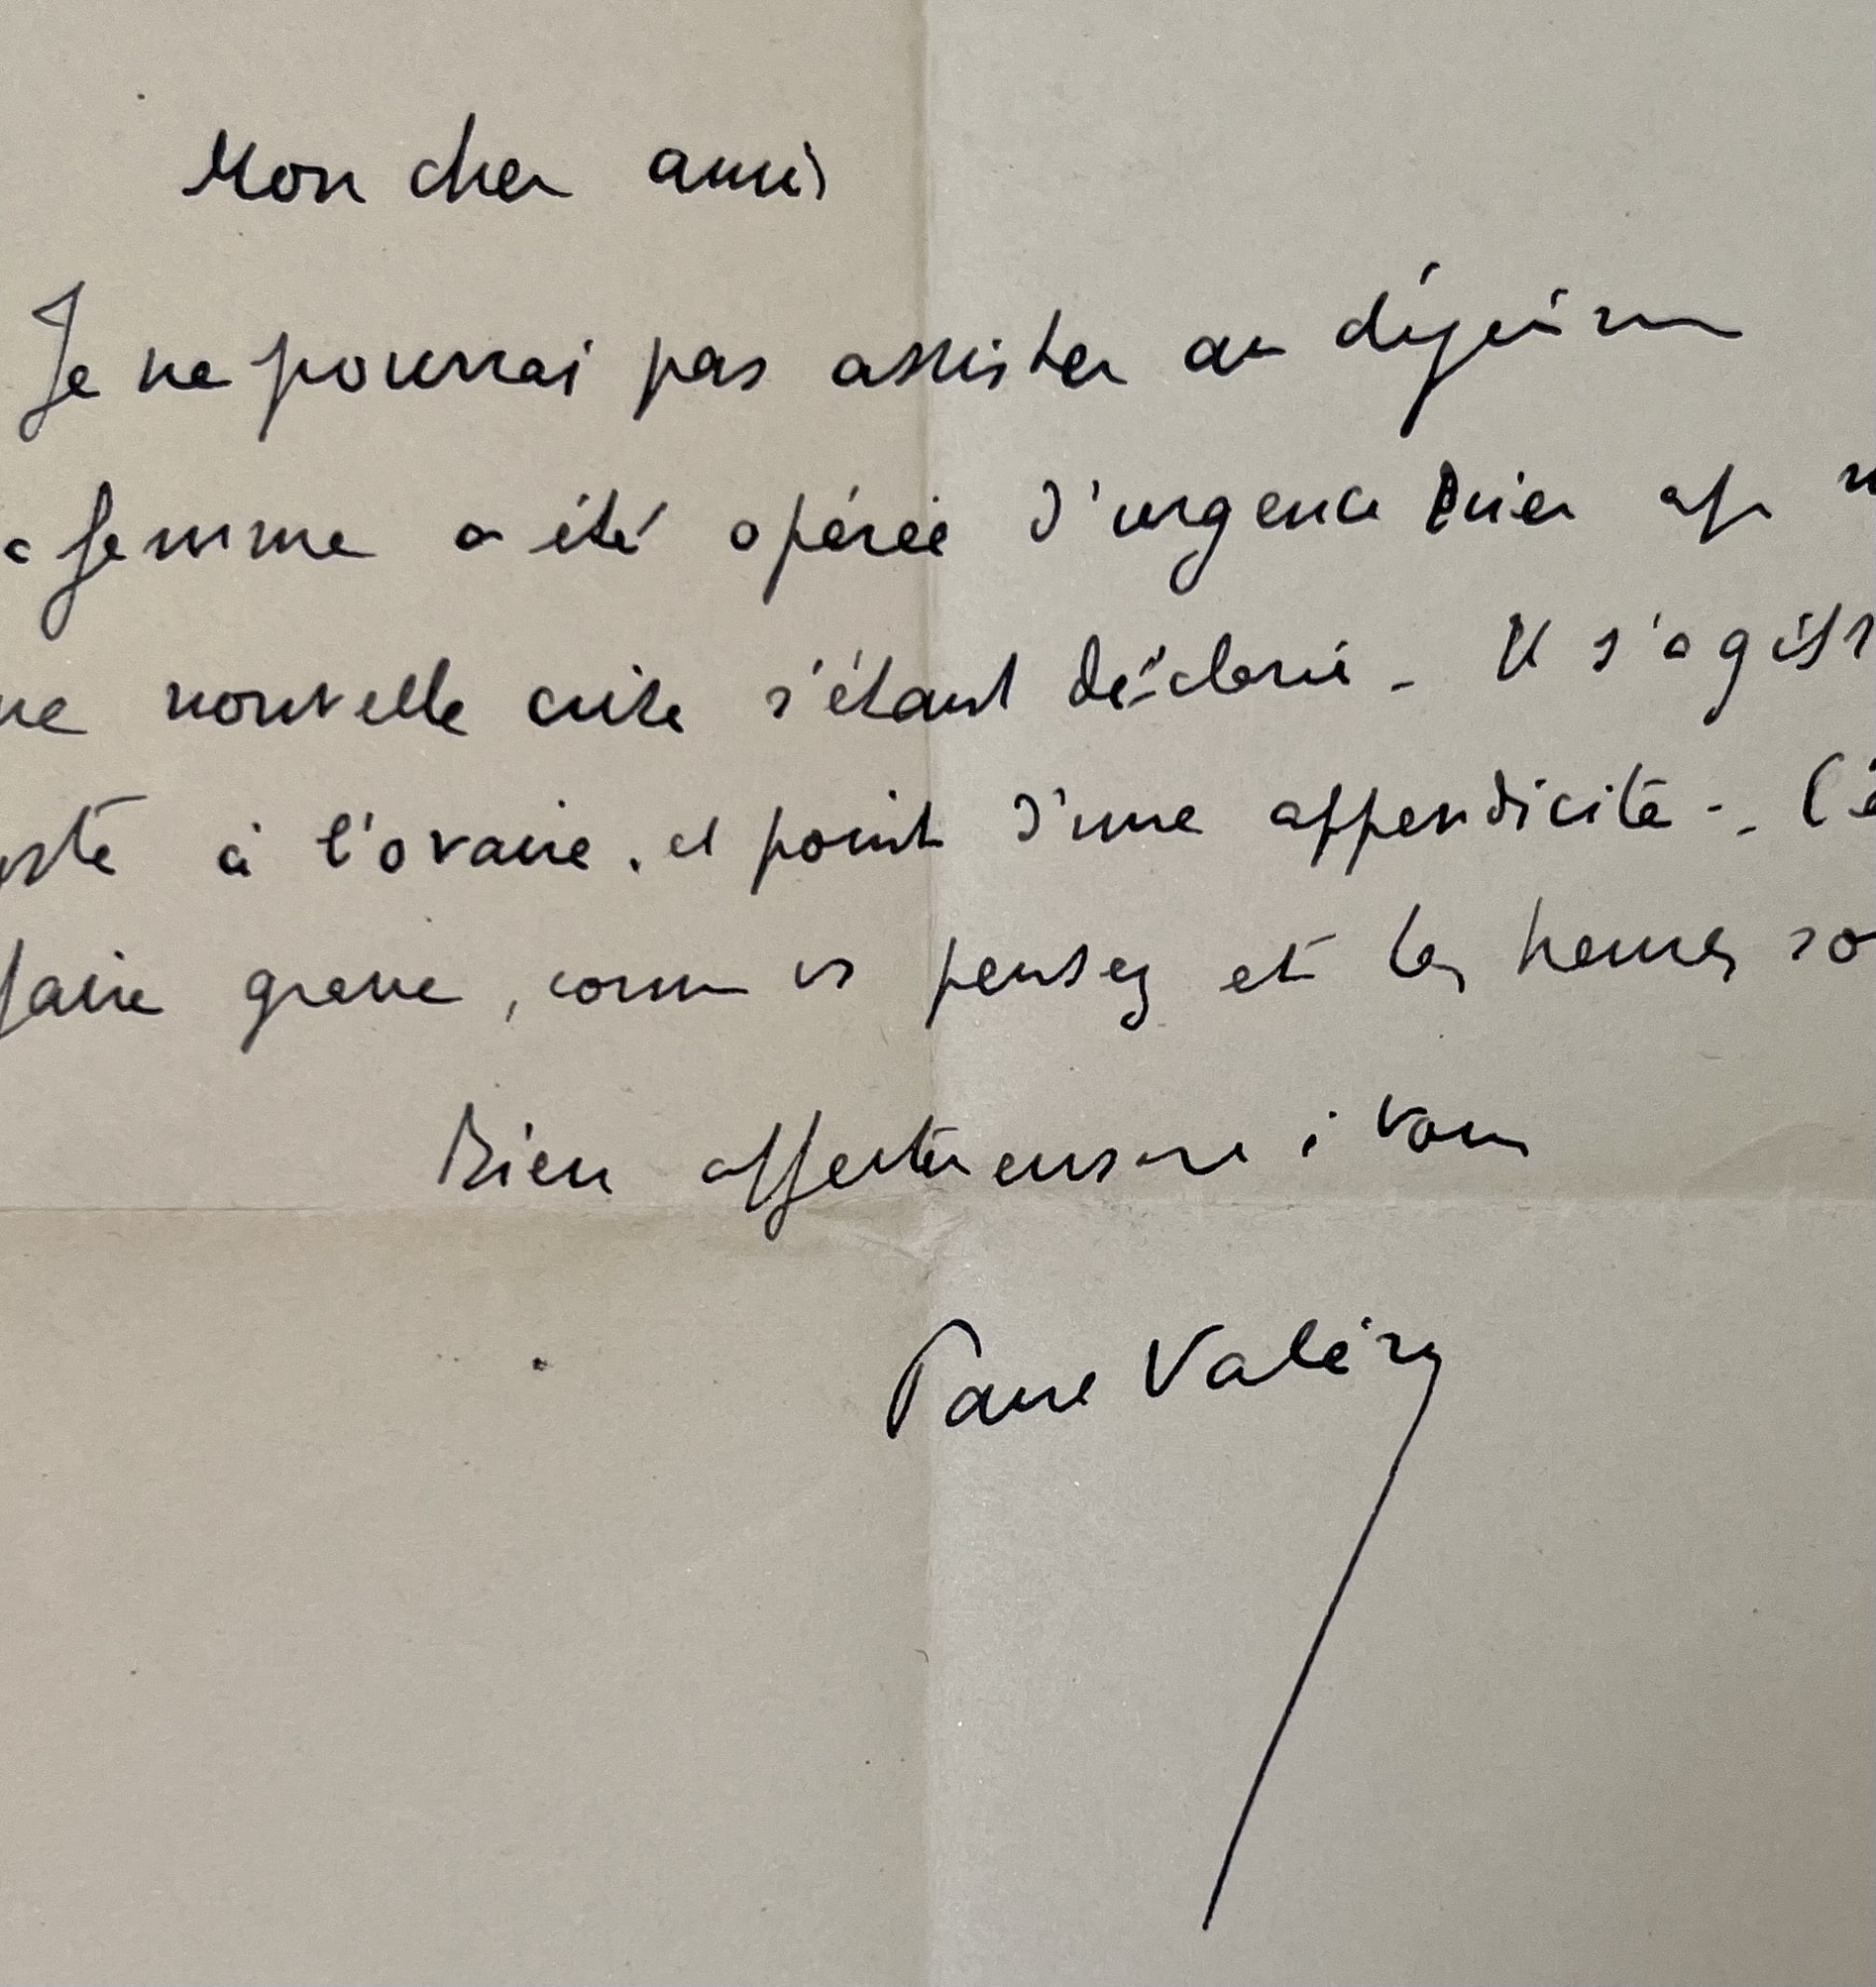 Mon cher ami
Je ne pourrai pas assister au déjeuner
femme a été opérée d'urgence hier ap
ne nouvelle crise s'étant déclarée - Il s'agiss
yste à l'ovaire. et point d'une appendicite -. C'é
faire grave, comme vs pensez et les heures so
Bien affectueusement à vous
Paul Valéry